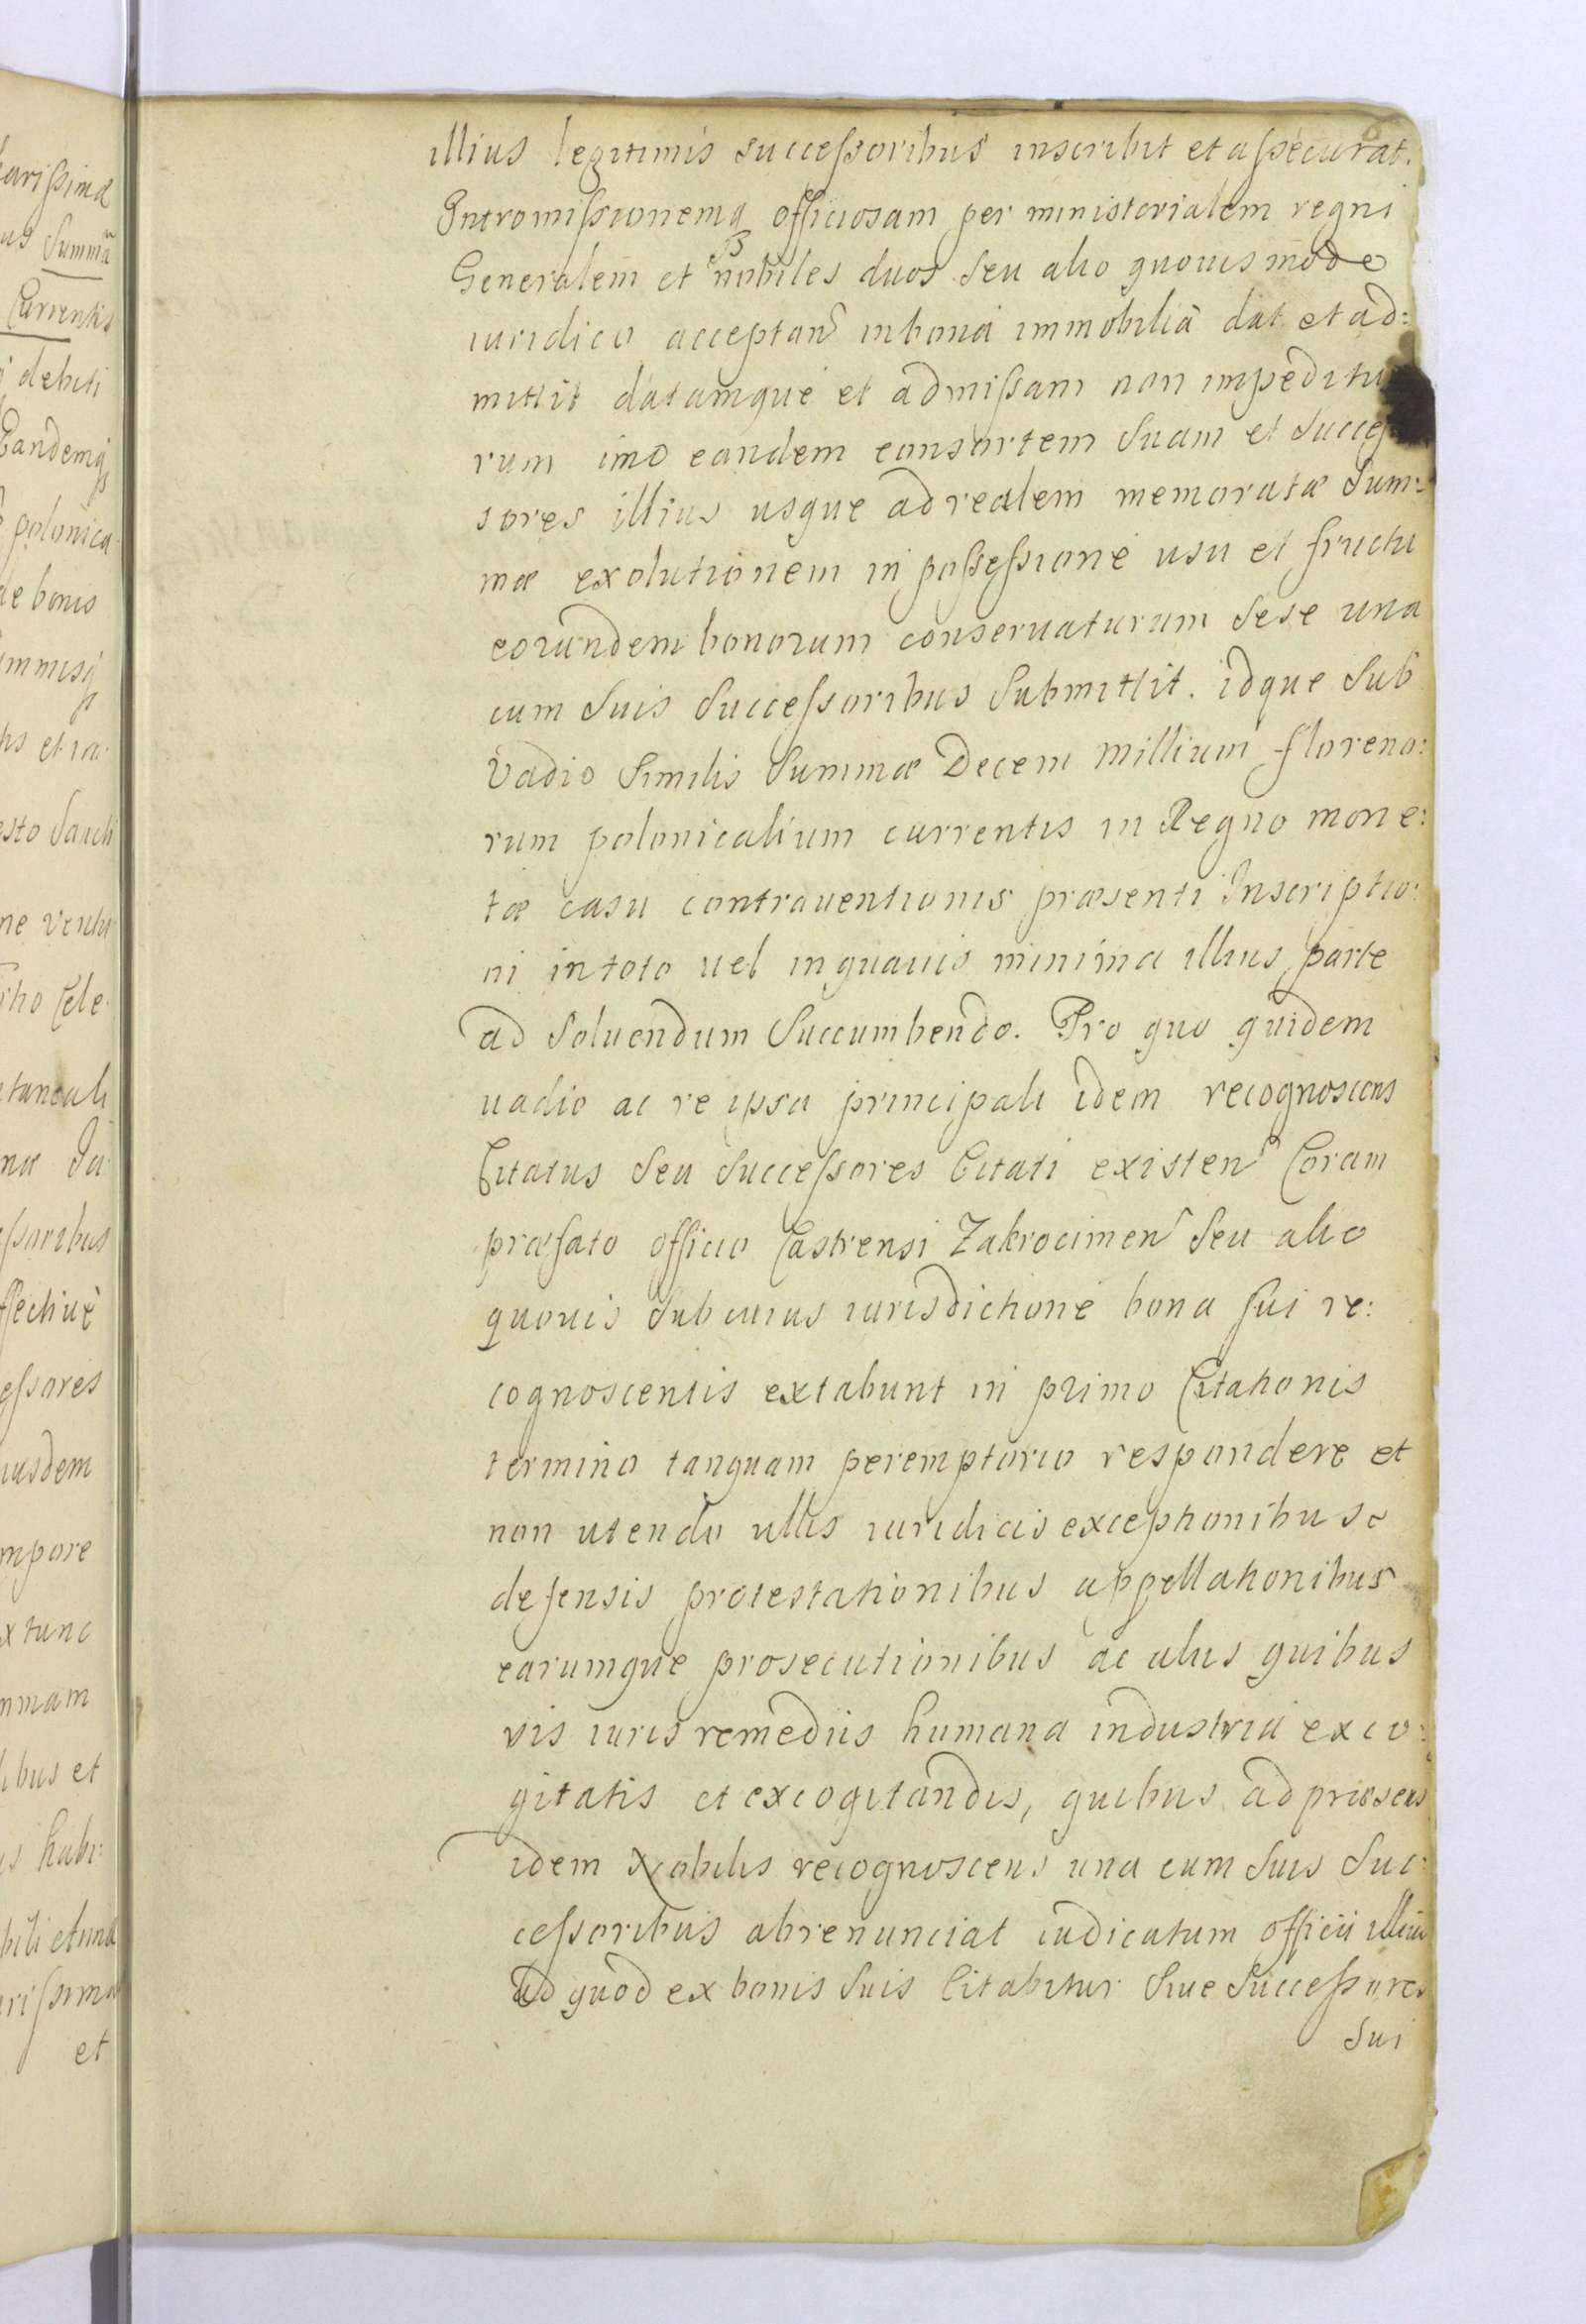 illius legitimis successoribus inscribit et assecurat.
Intromissionemq officiosam per ministerialem regni
Generalem et nobiles duos seu alio quouis modo
iuridico acceptan in bona immobilia dat et ad:
mittit datamque et admissam non impeditu
rum imo eandem consortem suam et succes
sores illius usque ad realem memoratæ Sum:
mæ exolutionem in possessione usu et fructu
eorundem bonorum conseruaturum sese una
cum suis successoribus submittit. idque sub
vadio similis Summæ Decem millium floreno:
rum polonicalium currentis in Regno mone:
tæ casu contrauentionis præsenti Inscriptio:
ni in toto vel in quauis minima illius parte
ad soluendum succumbendo. Pro quo quidem
uadio ac re ipsa principali idem recognoscens
Citatus seu successores Citati existen Coram
præfato officio Castrensi Zakrocimen seu alio
quouis sub cuius iurisdictione bona sui re:
cognoscentis extabunt in primo Citationis
termino tanquam peremptorio respondere et
non utendo ullis iuridicis exceptionibus
defensis protestationibus appellationibus
earumque prosecutionibus ac aliis quibus
vis iuris remediis humana industria exco:
gitatis et excogitandis, quibus ad præsens
idem Nobilis recognoscens una cum suis suc:
cessoribus abrenunciat iudicatum officii illius
ad quod ex bonis suis Citabitur siue successores
sui
arissima
us Summã
Currentis
debiti
Eandemq
polonica
de bonis
immisq
his et in
esto Sancti
ne
ho Cele
etaneali
næ
essoribus
ffectiuè
essores
iusdem
mpore
xtunc
mmam
ibus et
is habi:
bili et una
arissima
et